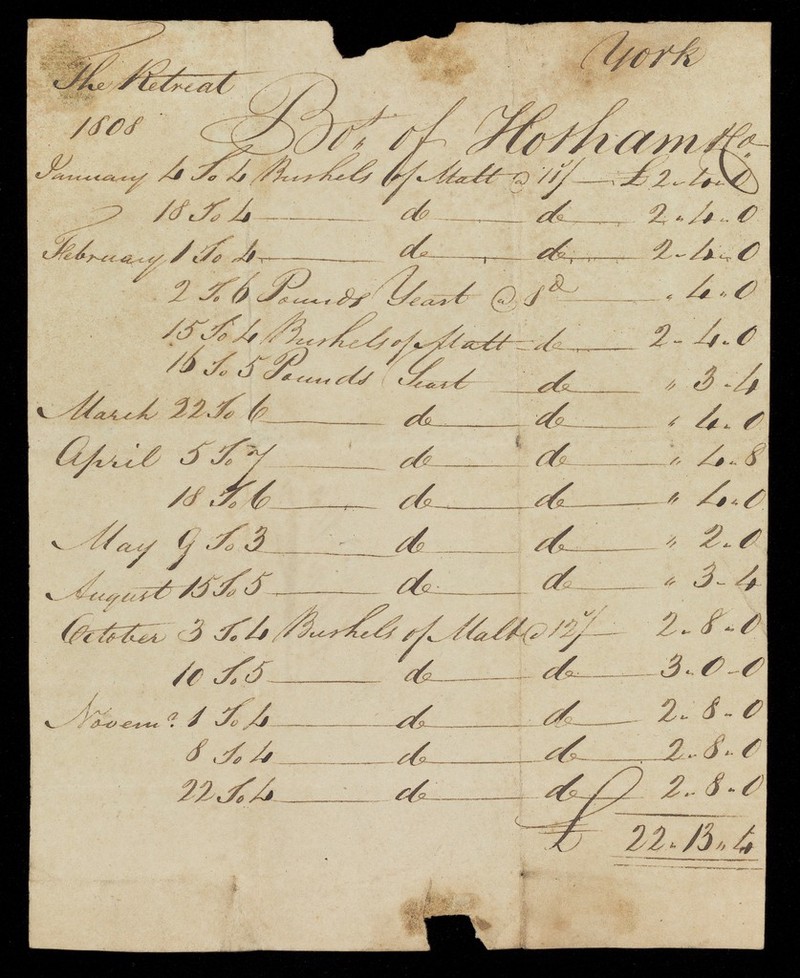 York
The Retreat
1808 Bot. of Hotham & Co
January 4 To 4 Bushels of Malt @ 11/ £ 2 " 4 " 0
18 To 4 do do 2 " 4 " 0
February 1 To 4 do do 2 " 4 " 0
2 To 6 Pounds Yeast @ 8d " 4 " 0
15 To 4 Bushels of Malt do 2 " 4 " 0
16 To 5 Pounds Yeast do " 3 " 4
March 22 To 6 do do " 4 " 0
April 5 To 7 do do " 4 " 8
18 To 6 do do " 4 " 0
May 9 To 3 do do " 2 " 0
August 15 To 5 do do " 3 " 4
October 3 To 4 Bushels of Malt @ 12/ 2 " 8 " 0
10 To 5 do do 3 " 0 " 0
Novemr. 1 To 4 do do 2 " 8 " 0
8 To 4 do do 2 " 8 " 0
22 To 4 do do 2 " 8 " 0
£ 22 " 13 " 4